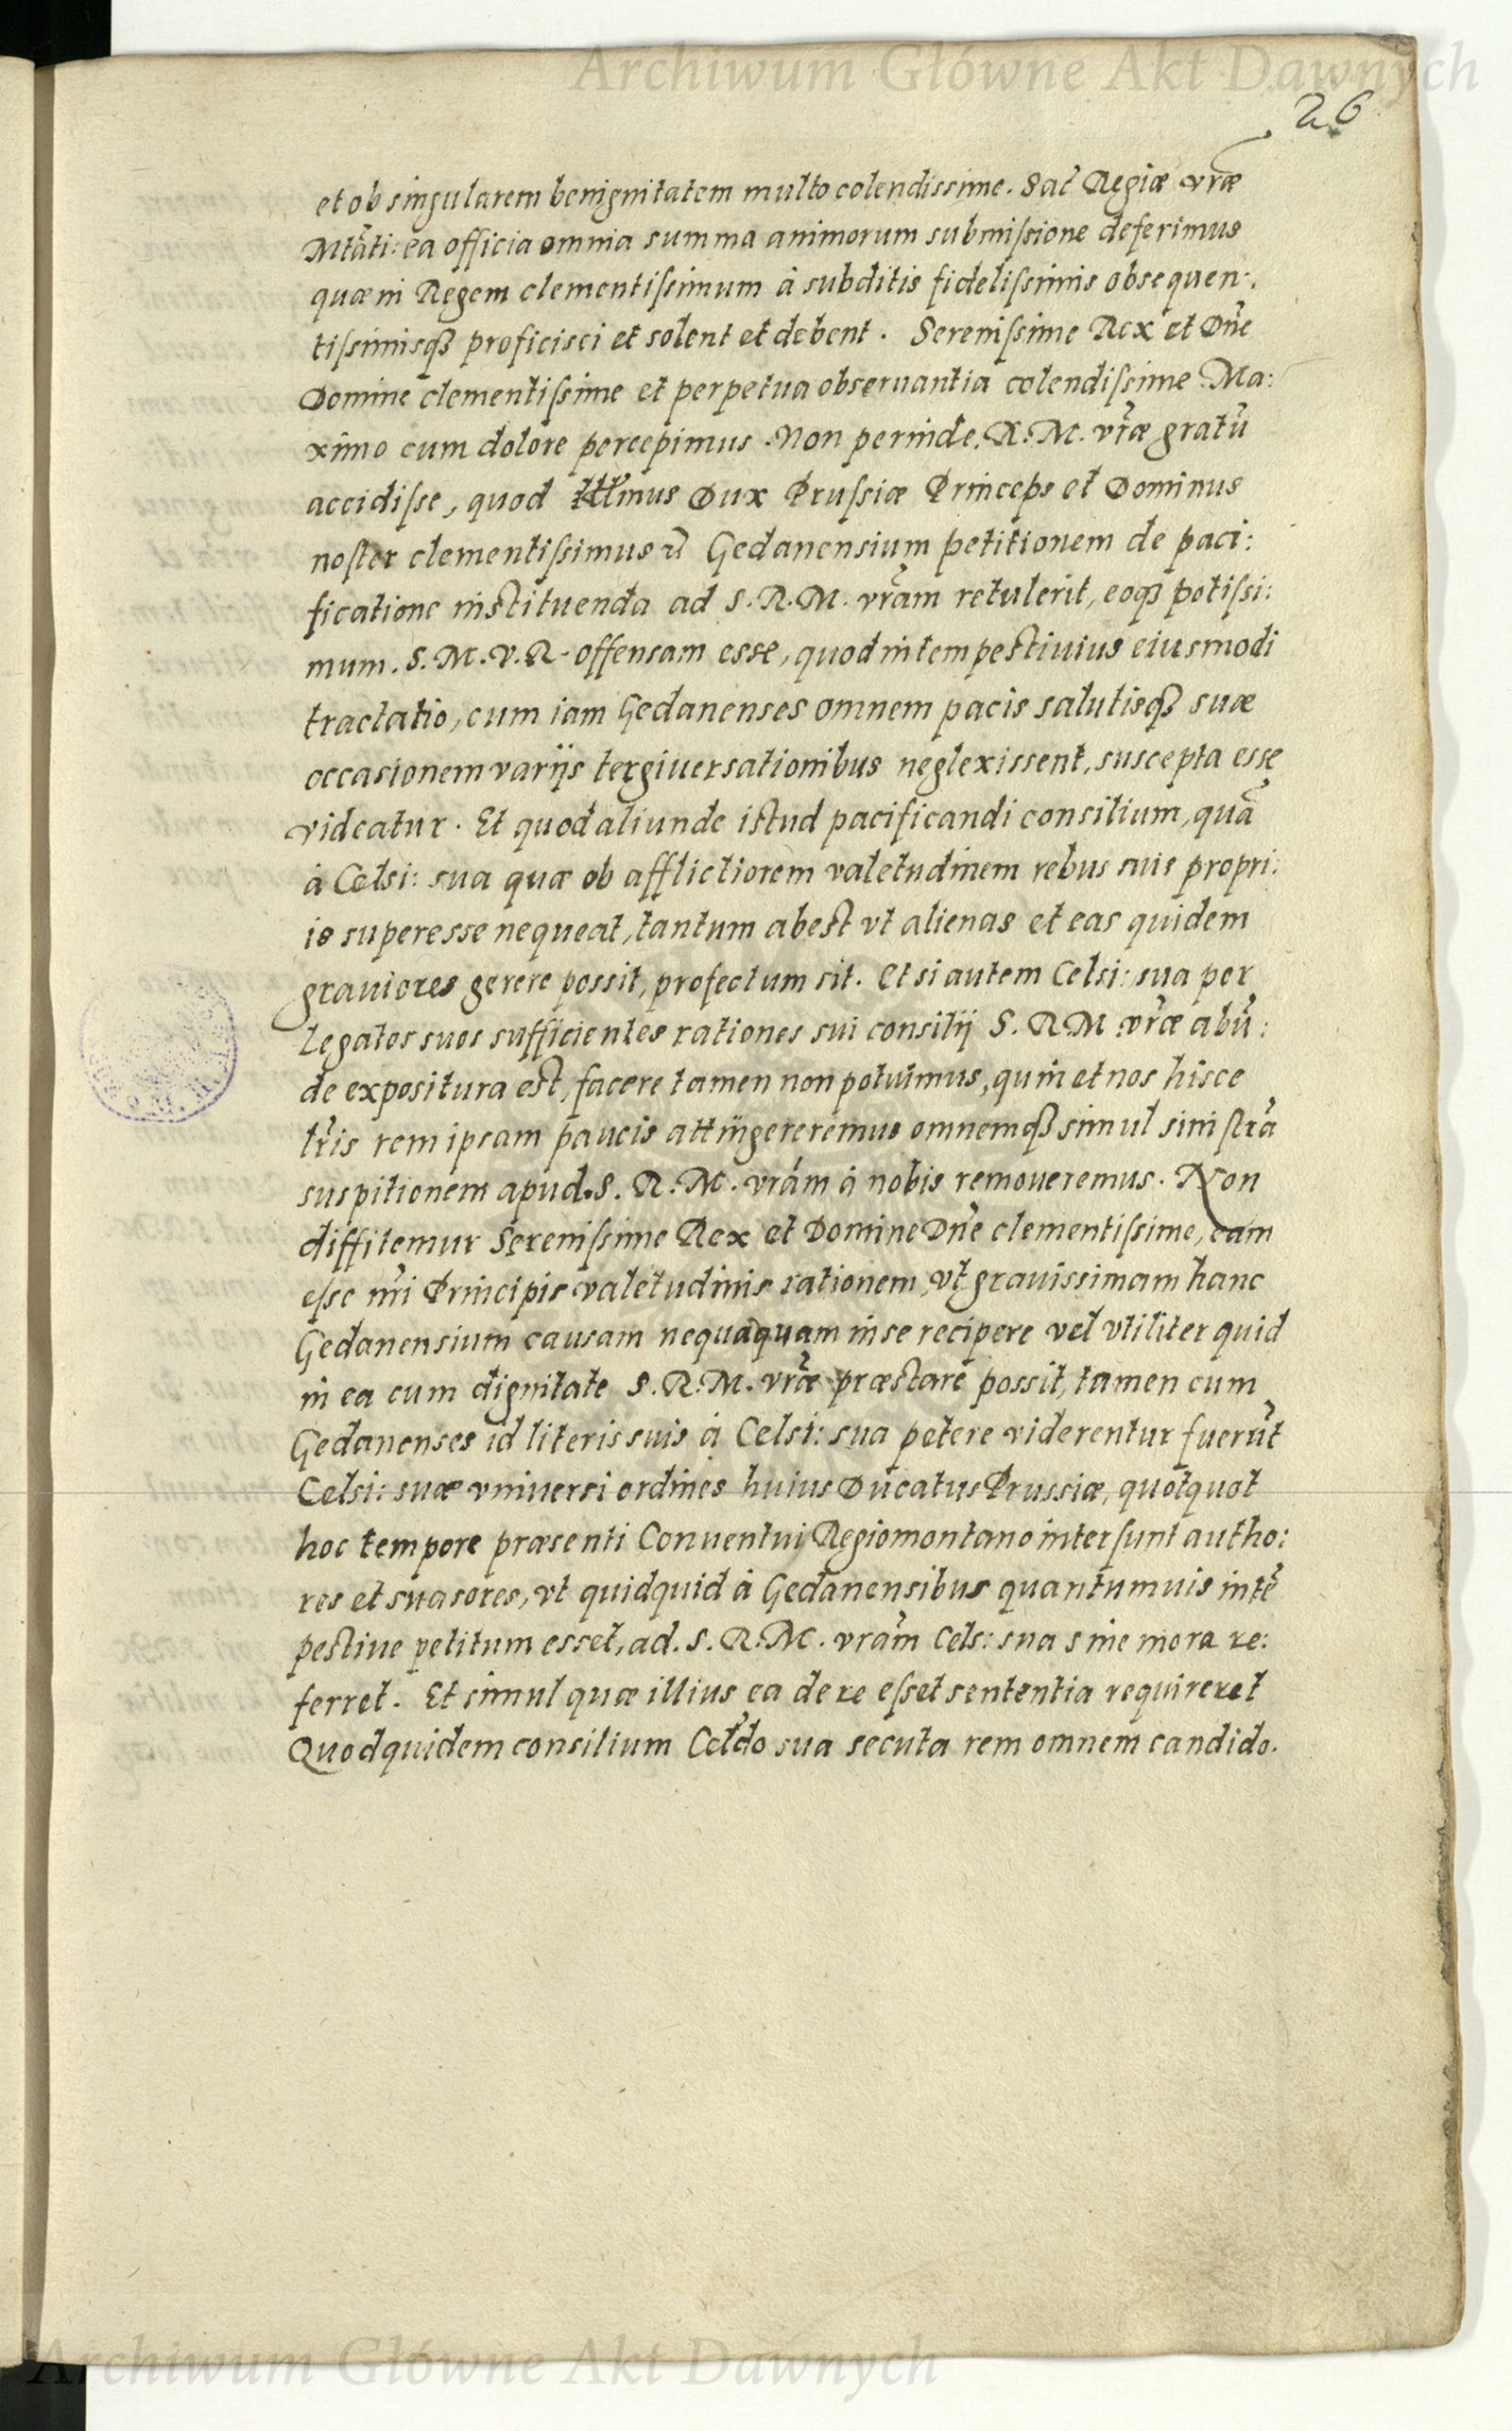 Archiwum Główne Akt Dawnych
26
et ob singularem benignitatem multo colendissime. Sac̃ Regiæ vr̃æ
Mtãti: ea officia omnia summa animorum submißione deferimus
quæ in Regem clementißimum à subditis fidelißimis obsequen:
tißimisqꝫ proficisci et solent et debent. Serenißime Rex et Dñe
Domine clementißime et perpetua obseruantia colendißime Ma:
ximo cum dolore percepimus. Non perinde. R. M. vr̃æ gratũ
accidiße, quod Illmus Dux Prußiæ Princeps et Dominus
noster clementißimus Gedanensium petitionem de paci:
ficatione instituenda ad S. R. M. vr̃am retulerit, eoqꝫ potißi:
mum. S. M. V. R. offensam esse, quod intempestiuius eiusmodi
tractatio, cum iam Gedanenses omnem pacis salutisqꝫ suæ
occasionem varijs tergiuersationibus neglexissent, suscepta esse
videatur. Et quod aliunde istud pacificandi consilium, quã
à Celsi: sua quæ ob afflictiorem valetudinem rebus suis propri:
is superesse nequeat, tantum abest vt alienas et eas quidem
grauiores gerere possit, profectum sit. Etsi autem Celsi: sua per
Legatos suos sufficientes rationes sui consilij S. R M vr̃æ abũ:
de expositura est, facere tamen non potuimus, quin et nos hisce
tr̃is rem ipsam paucis attingereremus omnemqꝫ simul sinistrã
suspitionem apud. S. R. M. vrám à nobis remoueremus. Non
diffitemur Serenißime Rex et Domine Dñe clementißime, eam
eße nr̃i Principis valetudinis rationem, vt grauissimam hanc
Gedanensium causam nequaquam in se recipere vel vtiliter quid
in ea cum dignitate S. R. M. vr̃æ præstare possit, tamen cum
Gedanenses id literis suis à Celsi: sua petere viderentur fuerũt
Celsi: suæ vniuersi ordines huius Ducatus Prussiæ, quotquot
hoc tempore præsenti Conuentui Regiomontano intersunt autho:
res et suasores, vt quidquid à Gedanensibus quantumuis intẽ
pestiue petitum esset, ad. S. R. M. vr̃am Cels: sua sine mora re:
ferret. Et simul quæ illius ea de re eßet sententia requireret
Quodquidem consilium Celdo sua secuta rem omnem candido.
Archiwum Główne Akt Dawnych